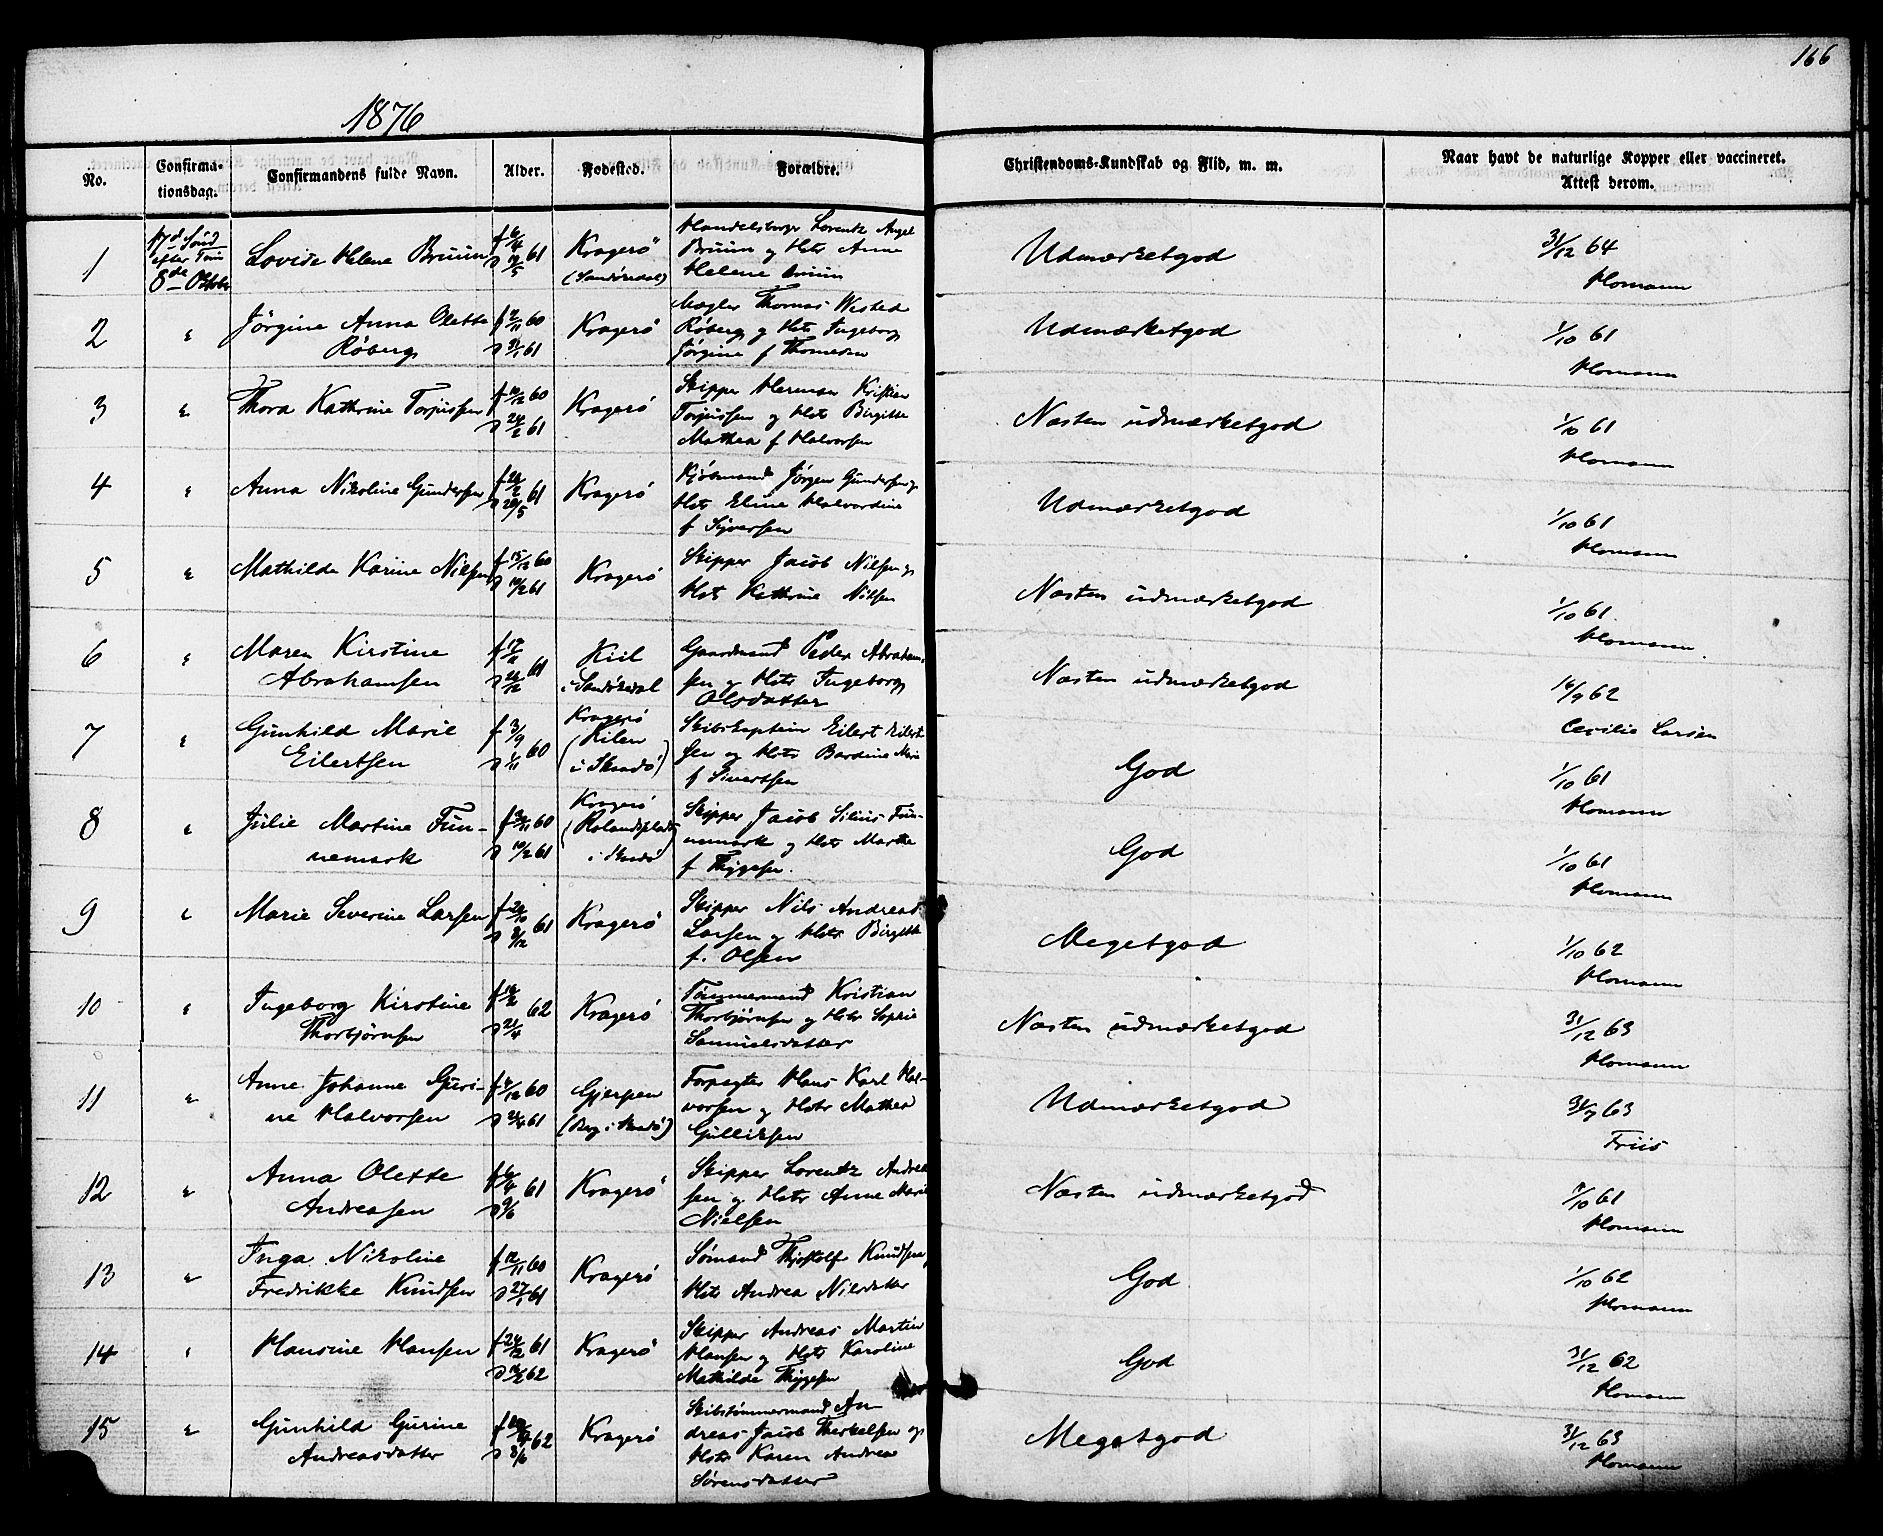 166
1876
No. Confirmationsdag. Confirmandens fulde Navn. Alder. Fødested. Forældre. Christendoms-Kundskab og Flid, m. m. Naar havt de naturlige Kopper eller vaccineret. Attest derom.
1 17d Sønd efter Trin 8de Oktobr
Lovise Helene Bruun
f 6/4 61
Kragerø
(Sandøkedal)
Handelsborger Lorentz Angel
Bruun og Hstr Anne
Helene Bruun
Udmærketgod
31/12 64
Homann
2 "
Jørgine Anna Olette
Røberg
60
61
Kragerø
Mægler Thomas Wested
Røberg og Hstr Ingeborg
Jørgine f Thomesen
Udmærketgod
1/10 61
Homann
3 "
Thora Kathrine Torjussen
60
61
Kragerø
Skipper Herman Kristian
Torjussen og Hstr Birgitte
Mathea f Halvorsen
Næsten udmærketgod
1/10 61
Homann
4 "
Anna Nikoline Gundersen
61
Kragerø
Kjøbmand Jørgen Gundersen og
Hstr Eline Halvordine
f Syversen
Udmærketgod
1/10 61
Homann
5 "
Mathilde Karine Nilsen
f 15/12 60
d 10/2 61
Kragerø
Skipper Jacob Nilsen og
Hstr Kathrine Nilsen
Næsten udmærketgod
1/10 61
Homann
6 "
Maren Kirstine
Abrahamsen
61
Kiil
i Sandøkedal
Gaardmand Peder Abraham-
sen og Hstr Ingeborg
Olsdatter
Næsten udmærketgod
16/9 62
Cecilie Larsen
7 "
Gunhild Marie
Eilertsen
f 3/9
d 1/11 60
Kragerø
(Kilen
i Skaadø)
Skibskaptein Eilert Eilert-
sen og Hstr Bardine Marie
f Sivertsen
God
1/10 61
Homann
8 "
Julie Martine Fun-
nemark
60
d 10/2 61
Kragerø
(Rolandsplads
i Skaadø)
Skipper Jacob Silius Fun-
nemark og Hstr Marthe
f Thygesen.
God
1/10 61
Homann
9 "
Marie Severine Larsen
61
Kragerø
Skipper Nils Andreas
Larsen og Hstr Birgitte
f. Olsen
Megetgod
1/10 62
Homann
10 "
Ingeborg Kirstine
Thorbjørnsen
62
Kragerø
Tømmermand Kristian
Thorbjørnsen og Hstr Sophie
Samuelsdatter
Næsten udmærketgod
31/12 63
Homann
11 "
Anne Johanne Guri-
ne Halvorsen
60
61
Gjerpen
(Berg i Skaadø)
Forpagter Hans Karl Hal-
vorsen og Hstr Mathea
Gulliksen
Udmærketgod
31/7 63
Friis
12 "
Anna Olette
Andreasen
f 6/4 61
Kragerø
Skipper Lorentz Andrea-
sen og Hstr Anne Marie
Nielsen
Næsten udmærketgod
1/10 61
Homann
13 "
Inga Nikoline
Fredrikke Knudsen
f 12/11 60
d 27/1 61
Kragerø
Sømand Thjostolf Knudsen,
Hstr Andrea Nilsdatter
God
1/10 62
Homann
14 "
Hansine Hansen
f 24/12 61
62
Kragerø
Skipper Andreas Martin
Hansen og Hstr Karoline
Mathilde Thygesen
God
31/12 62
Homann
15 "
Gunhild Gurine
Andreasdatter
62
Kragerø
Skibstømmermand An-
dreas Jacob Therkelsen og
Hstr Karen Andrea
Sørensdatter
Megetgod
31/12 63
Homann